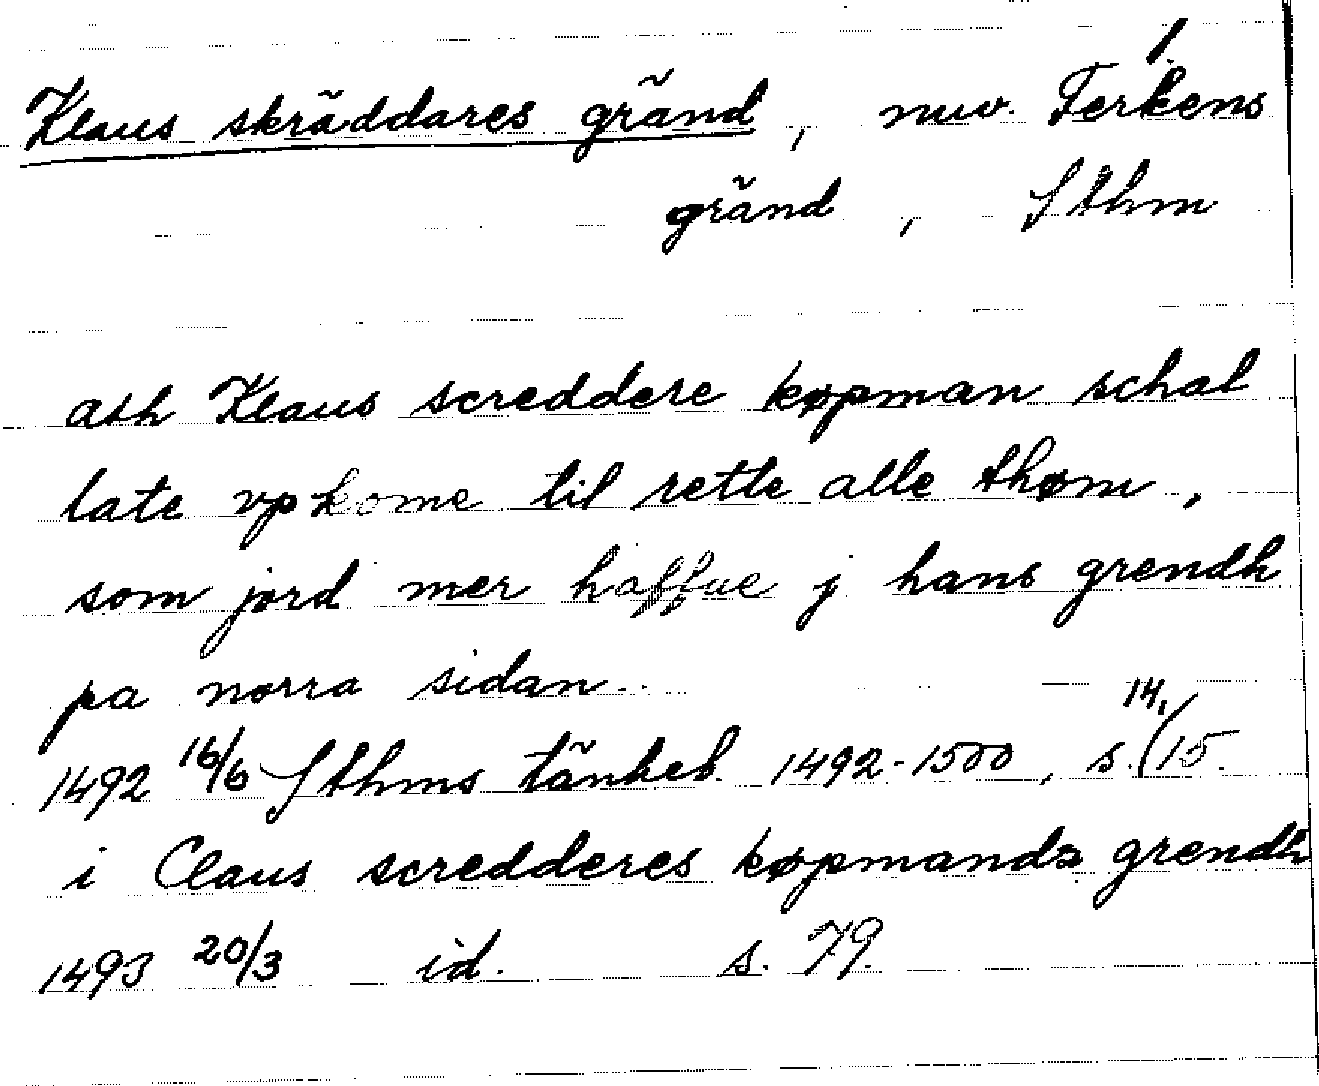 1.
Klaus skräddares gränd, nuv. Ferkens
gränd, Sthm
ath Klaus screddere køpman schal
late vpkome til rette alle thøm,
som jord mer haffue j hans grendh
pa norra sidan..
1492 16/6 Sthms tänkeb. 1492-1500, s. 14, (15.
i Claus scredderes køpmands grendh
1493 20/3 id. s. 79.